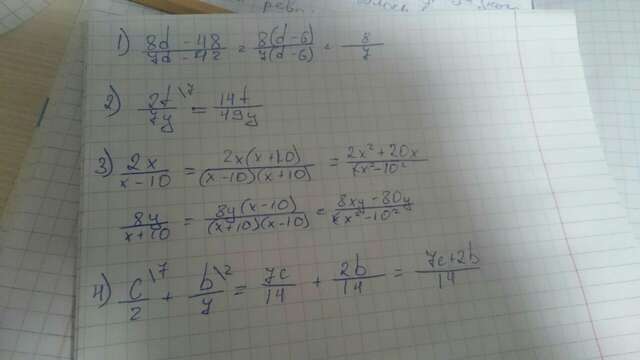 1) (8d - 48)/(7d - 42) = 8(d - 6)/7(d - 6) = 8/7
2) 2t\7/7y = 14t/49y
3) 2x/(x - 10) = 2x(x + 10)/(x - 10)(x + 10) = (2x² + 20x)/(x² - 10²)
8y/(x + 10) = 8y(x - 10)/(x + 10)(x - 10) = (8xy - 80y)/(x² - 10²)
4) c\7/2 + b\2/7 = 7c/14 + 2b/14 = (7c + 2b)/14